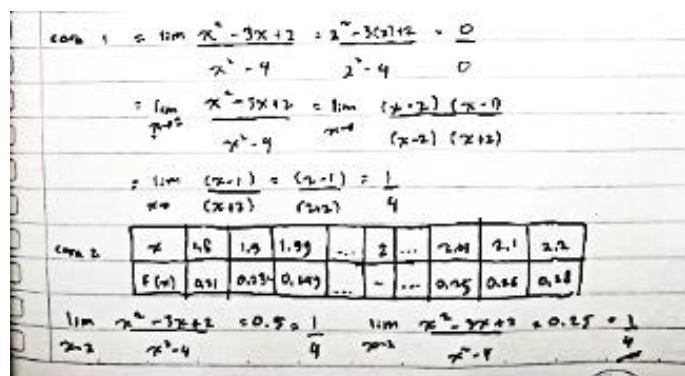 cara 1 = lim x² - 3x + 2 / x² - 4 = 2² - 3(2) + 2 / 2² - 4 = 0 / 0
= lim x→2 x² - 3x + 2 / x² - 4 = lim (x - 2) (x - 1) / (x - 2) (x + 2)
= lim (x - 1) / (x + 2) = (2 - 1) / (2 + 2) = 1 / 4
cara 2 x 1,9 1,99 ... 2 ... 2,01 2,1 2,2
F(x) 0,21 0,234 0,249 ... - ... 0,25 0,26 0,28
lim x→2 x² - 3x + 2 / x² - 4 = 1 / 4 lim x→2 x² - 3x + 2 / x² - 4 = 0.25 = 1 / 4